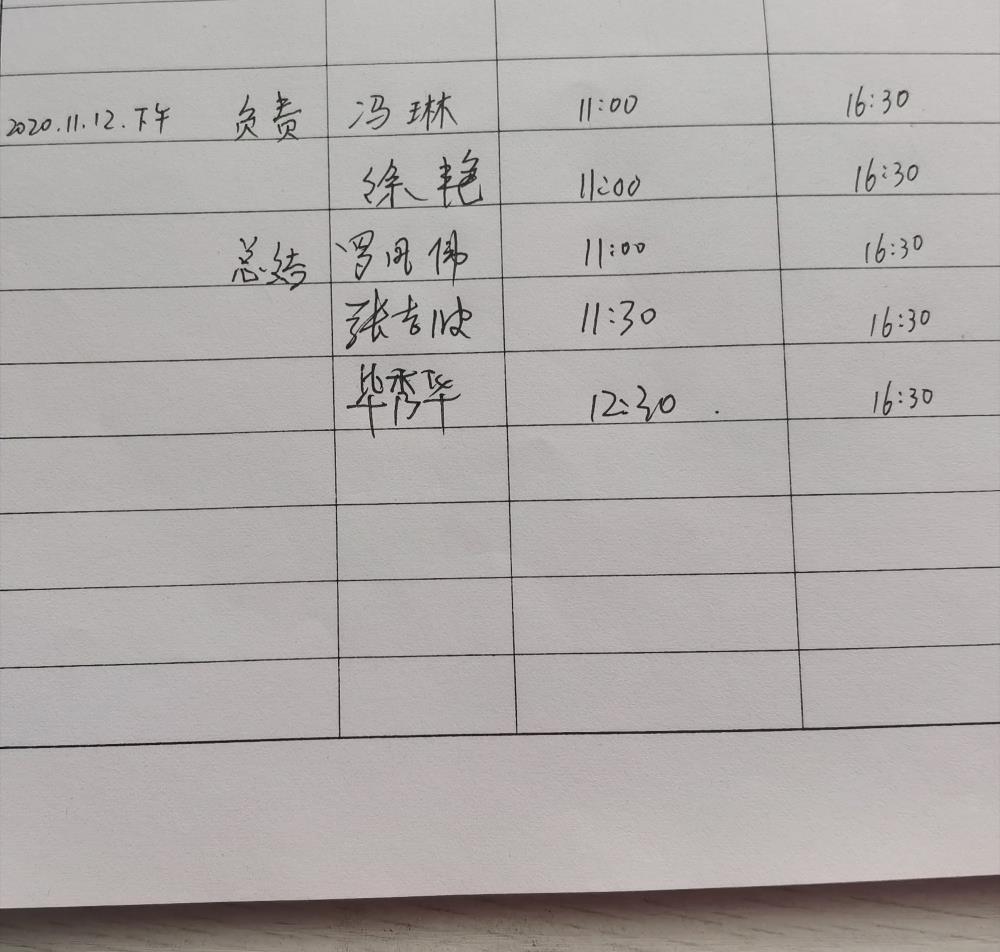 2020.11.12.下午 负责 冯琳 11:00 16:30
徐艳 11:00 16:30
总结 罗凤伟 11:00 16:30
张吉波 11:30 16:30
毕秀华 12:30 16:30